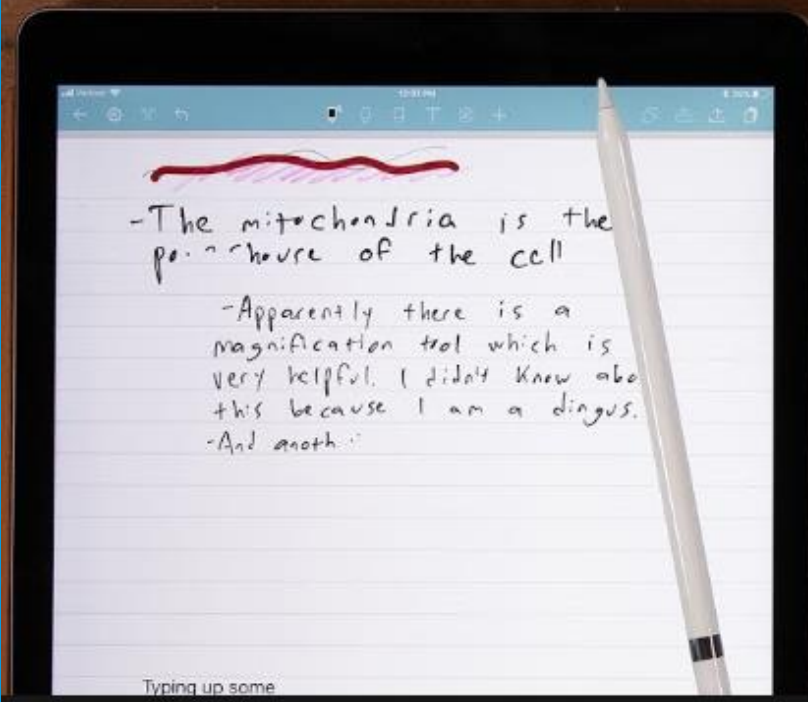 Verizon
12:51 PM
-The mitochondria is the
of the cell
-Apparently there is a
magnification tool which is
very helpful. I didn't know abo
this because I am a dingus.
-And anoth
Typing up some